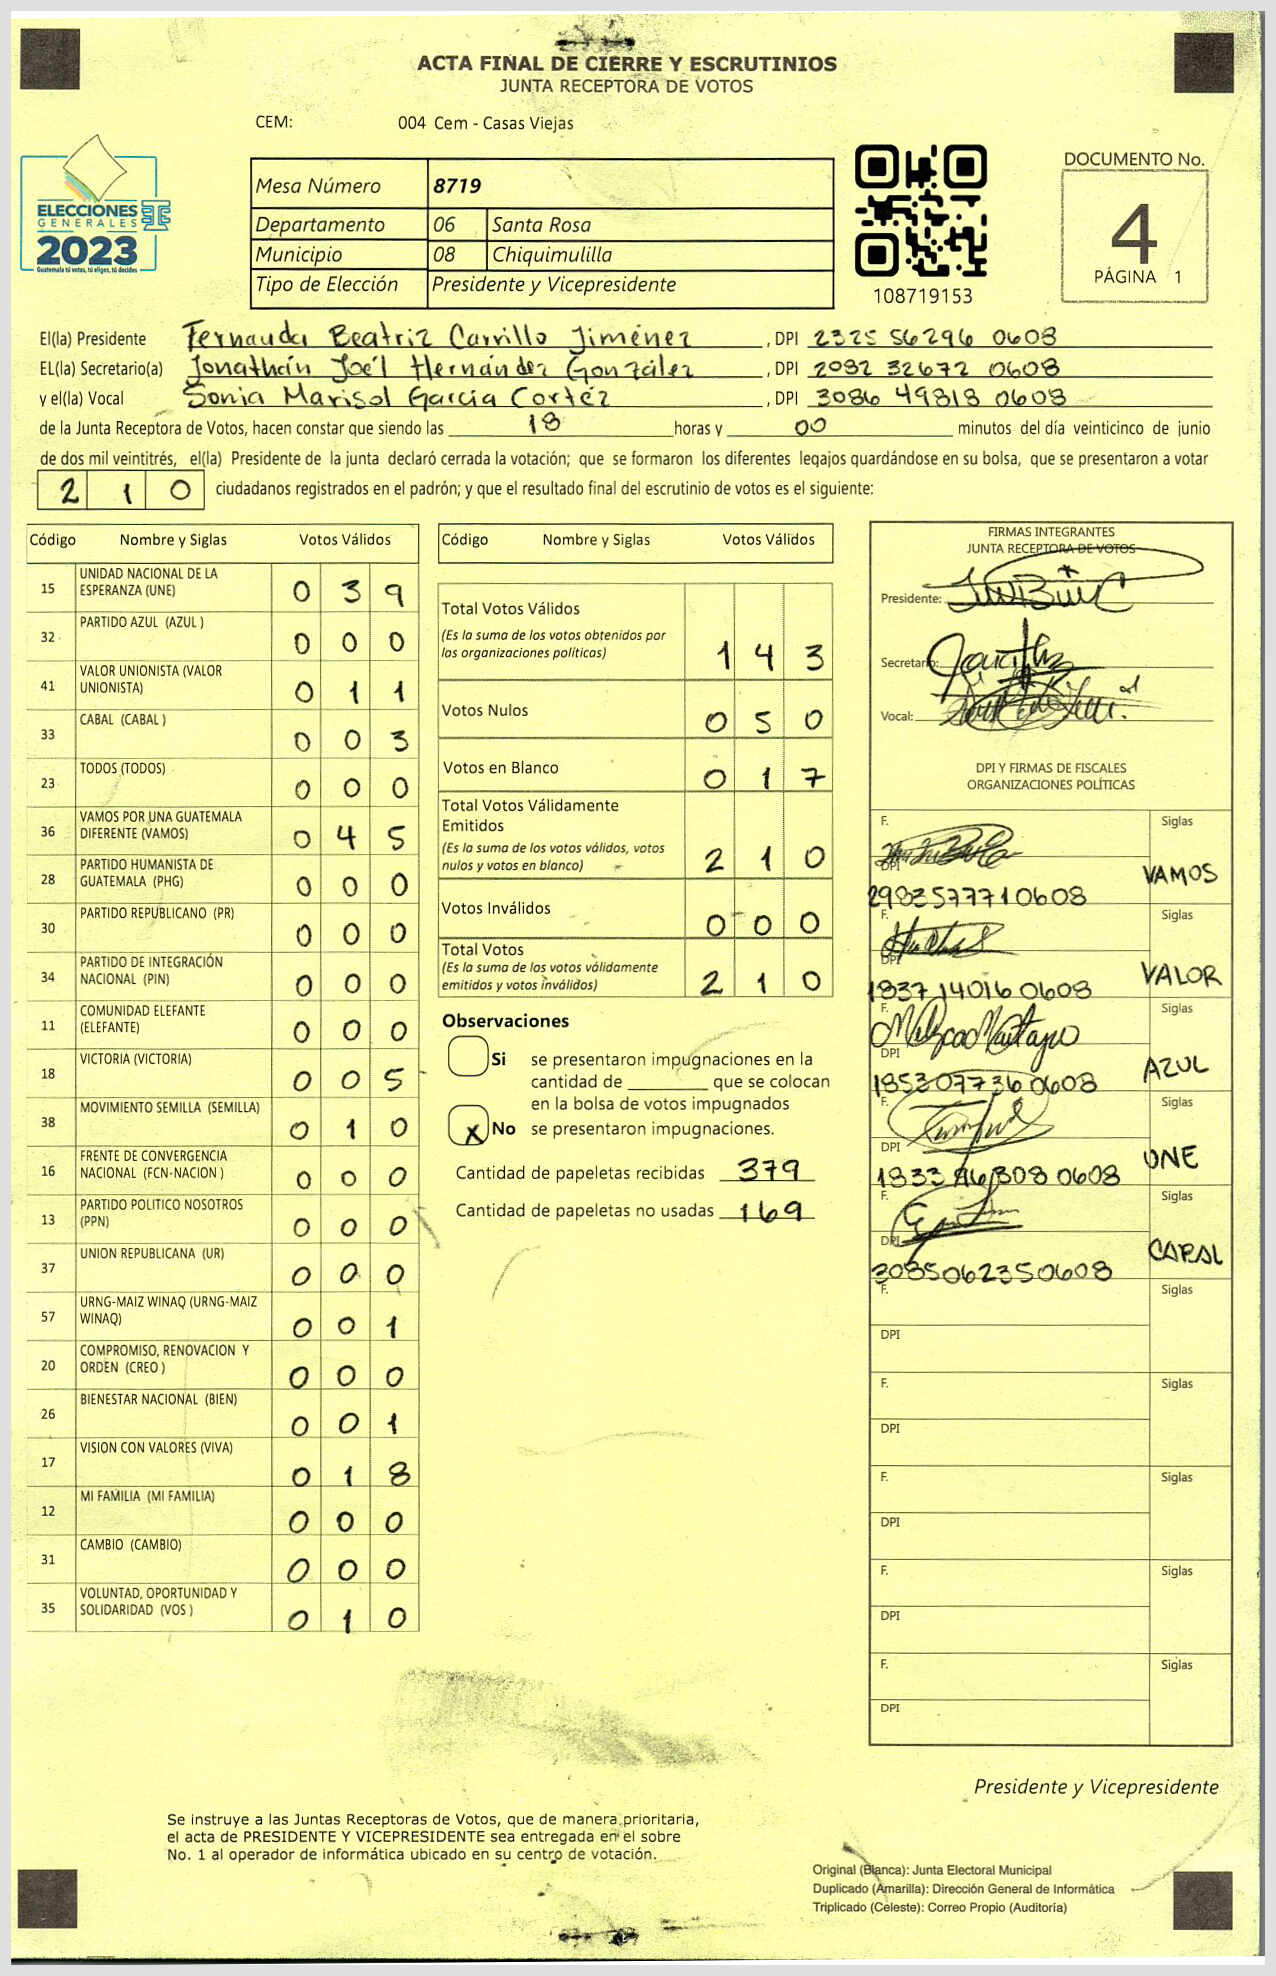 ACTA FINAL DE CIERRE Y ESCRUTINIOS
JUNTA RECEPTORA DE VOTOS
CEM: 004 Cem - Casas Viejas
ELECCIONES
GENERALES
2023
Guatemala tú votas, tú eliges, tú decides
Mesa Número 8719
Departamento 06 Santa Rosa
Municipio 08 Chiquimulilla
Tipo de Elección Presidente y Vicepresidente
108719153
DOCUMENTO No.
4
PÁGINA 1
El(la) Presidente Fernanda Beatriz Carrillo Jiménez , DPI 2325 56296 0608
EL(la) Secretario(a) Jonathán Joél Hernández González , DPI 2082 32672 0608
y el(la) Vocal Sonia Marisol García Cortéz , DPI 3086 49818 0608
de la Junta Receptora de Votos, hacen constar que siendo las 18 horas y 00 minutos del día veinticinco de junio
de dos mil veintitrés, el(la) Presidente de la junta declaró cerrada la votación; que se formaron los diferentes legajos guardándose en su bolsa, que se presentaron a votar
2 1 0 ciudadanos registrados en el padrón; y que el resultado final del escrutinio de votos es el siguiente:
Código Nombre y Siglas Votos Válidos
15 UNIDAD NACIONAL DE LA
ESPERANZA (UNE) 0 3 9
32 PARTIDO AZUL (AZUL ) 0 0 0
41 VALOR UNIONISTA (VALOR
UNIONISTA) 0 1 1
33 CABAL (CABAL ) 0 0 3
23 TODOS (TODOS) 0 0 0
36 VAMOS POR UNA GUATEMALA
DIFERENTE (VAMOS) 0 4 5
28 PARTIDO HUMANISTA DE
GUATEMALA (PHG) 0 0 0
30 PARTIDO REPUBLICANO (PR) 0 0 0
34 PARTIDO DE INTEGRACIÓN
NACIONAL (PIN) 0 0 0
11 COMUNIDAD ELEFANTE
(ELEFANTE) 0 0 0
18 VICTORIA (VICTORIA) 0 0 5
38 MOVIMIENTO SEMILLA (SEMILLA) 0 1 0
16 FRENTE DE CONVERGENCIA
NACIONAL (FCN-NACION ) 0 0 0
13 PARTIDO POLITICO NOSOTROS
(PPN) 0 0 0
37 UNION REPUBLICANA (UR) 0 0 0
57 URNG-MAIZ WINAQ (URNG-MAIZ
WINAQ) 0 0 1
20 COMPROMISO, RENOVACION Y
ORDEN (CREO ) 0 0 0
26 BIENESTAR NACIONAL (BIEN) 0 0 1
17 VISION CON VALORES (VIVA) 0 1 8
12 MI FAMILIA (MI FAMILIA) 0 0 0
31 CAMBIO (CAMBIO) 0 0 0
35 VOLUNTAD, OPORTUNIDAD Y
SOLIDARIDAD (VOS ) 0 1 0
Código Nombre y Siglas Votos Válidos
Total Votos Válidos
(Es la suma de los votos obtenidos por
las organizaciones políticas) 1 4 3
Votos Nulos 0 5 0
Votos en Blanco 0 1 7
Total Votos Válidamente
Emitidos
(Es la suma de los votos válidos, votos
nulos y votos en blanco) 2 1 0
Votos Inválidos 0 0 0
Total Votos
(Es la suma de los votos válidamente
emitidos y votos inválidos) 2 1 0
Observaciones
Si se presentaron impugnaciones en la
cantidad de ________ que se colocan
en la bolsa de votos impugnados
x No se presentaron impugnaciones.
Cantidad de papeletas recibidas 379
Cantidad de papeletas no usadas 169
FIRMAS INTEGRANTES
JUNTA RECEPTORA DE VOTOS
Presidente:
Secretario:
Vocal:
DPI Y FIRMAS DE FISCALES
ORGANIZACIONES POLÍTICAS
F. Siglas
DPI VAMOS
2983577710608
F. Siglas
DPI VALOR
1837 14016 0608
F. Siglas
DPI AZUL
1853077360608
F. Siglas
DPI UNE
1833 0608
F. Siglas
DPI CABAL
3085062350608
F. Siglas
DPI
F. Siglas
DPI
F. Siglas
DPI
F. Siglas
DPI
F. Siglas
DPI
Presidente y Vicepresidente
Se instruye a las Juntas Receptoras de Votos, que de manera prioritaria,
el acta de PRESIDENTE Y VICEPRESIDENTE sea entregada en el sobre
No. 1 al operador de informática ubicado en su centro de votación.
Original (Blanca): Junta Electoral Municipal
Duplicado (Amarilla): Dirección General de Informática
Triplicado (Celeste): Correo Propio (Auditoría)